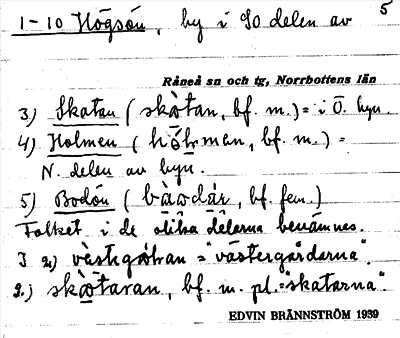 1-10 Högsön, by i SO delen av 5
Råneå sn och tg, Norrbottens län
3) Skatan (skàtan, bf. m.) = i Ö. byn.
4) Holmen (hólmen, bf. m.) =
N. delen av byn.
5) Bodön (bàodár, bf. fem.)
Folket i de olika delarna benämnes.
I 2,) vàstigɑ́ɬran = "västergårderna".
2.) skàtaran, bf. m. pl. = "skatarna".
EDVIN BRÄNNSTRÖM 1939